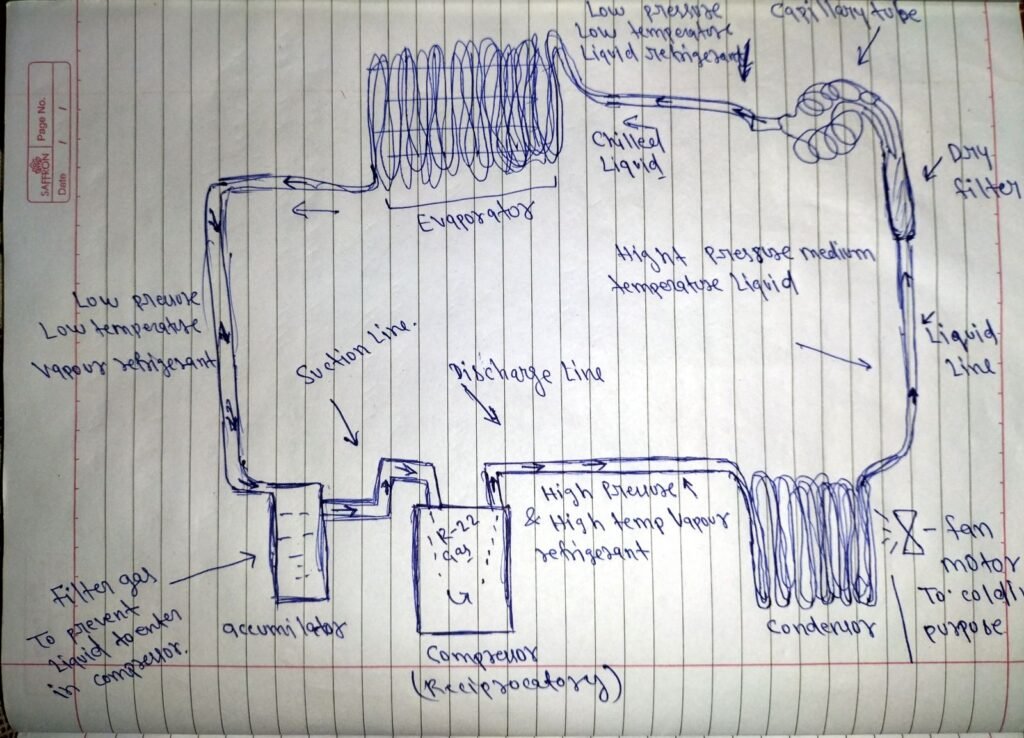 Low pressure
Low temperature
Liquid refrigerant
Capillary tube
Page No.
SAFFRON
Date / /
Chilled
Liquid
Dry
filter
Evaporator
Hight pressure medium
temperature Liquid
Low pressure
Low temperature
Vapour refrigerant
Suction Line.
Discharge Line
Liquid
Line
High pressure
& High temp Vapour
refrigerant
R-22
Gas
fan
motor
To
purpose
Filter gas
To prevent
Liquid to enter
in compressor.
accumilator
Compressor
(Reciprocatory)
Condensor